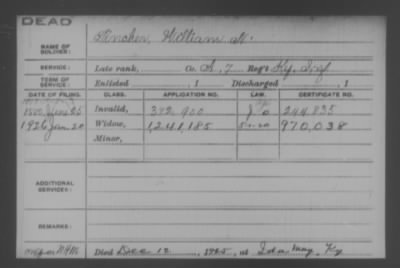 DEAD
NAME OF SOLDIER: Fincher, William N.
SERVICE: Late rank, Co. A, 7 Reg't Ky. Inf.
TERM OF SERVICE: Enlisted , 1 Discharged , 1
DATE OF FILING. CLASS. APPLICATION NO. LAW. CERTIFICATE NO.
1880, Invalid, 392.900 244.835
1926 Jan. 20 Widow, 1,241,185 970,038
Minor,
ADDITIONAL SERVICES:
REMARKS:
Died Dec 12, 1925, at Ida May, Ky